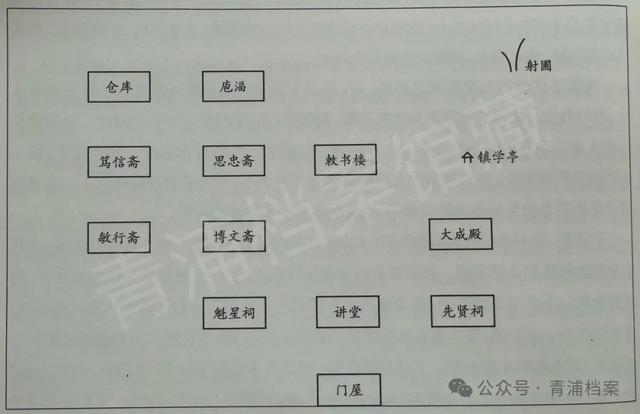 射圃
仓库
庖湢
笃信斋
思忠斋
敕书楼
镇学亭
敏行斋
博文斋
大成殿
魁星祠
讲堂
先贤祠
门屋
青浦档案馆藏
公众号·青浦档案